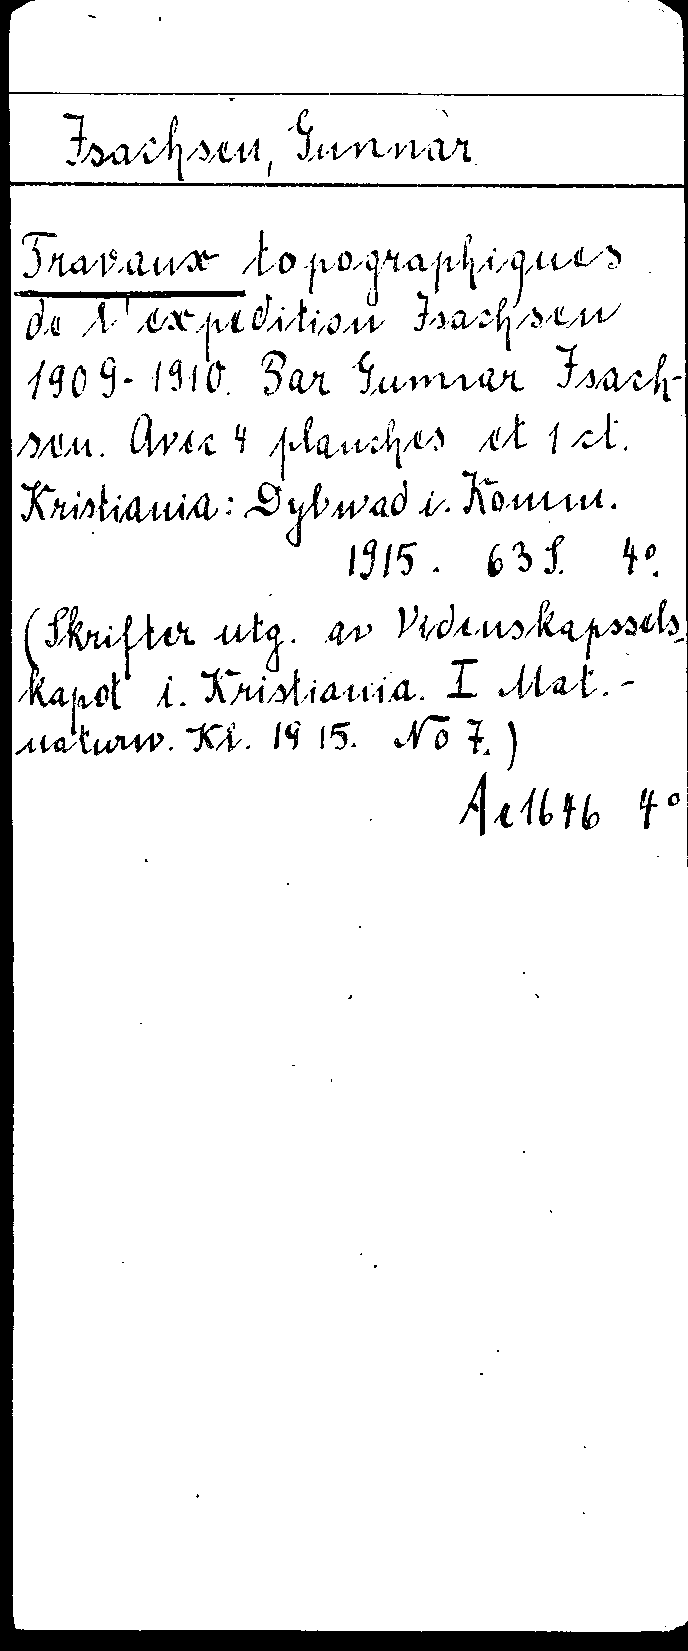 Isachsen, Gunnar
Travaux topographiques
de l'expedition Isachsen
1909-1910. Par Gunnar Isach-
sen. Avec 4 planches et 1 ct.
Kristiania: Dybwad i. Komm.
1915. 63 S. 4°.
(Skrifter utg. av Videnskapssels-
kapet i. Kristiania. I Mat.-
naturw. Kl. 1915. No 7.)
Ae 1646 4°